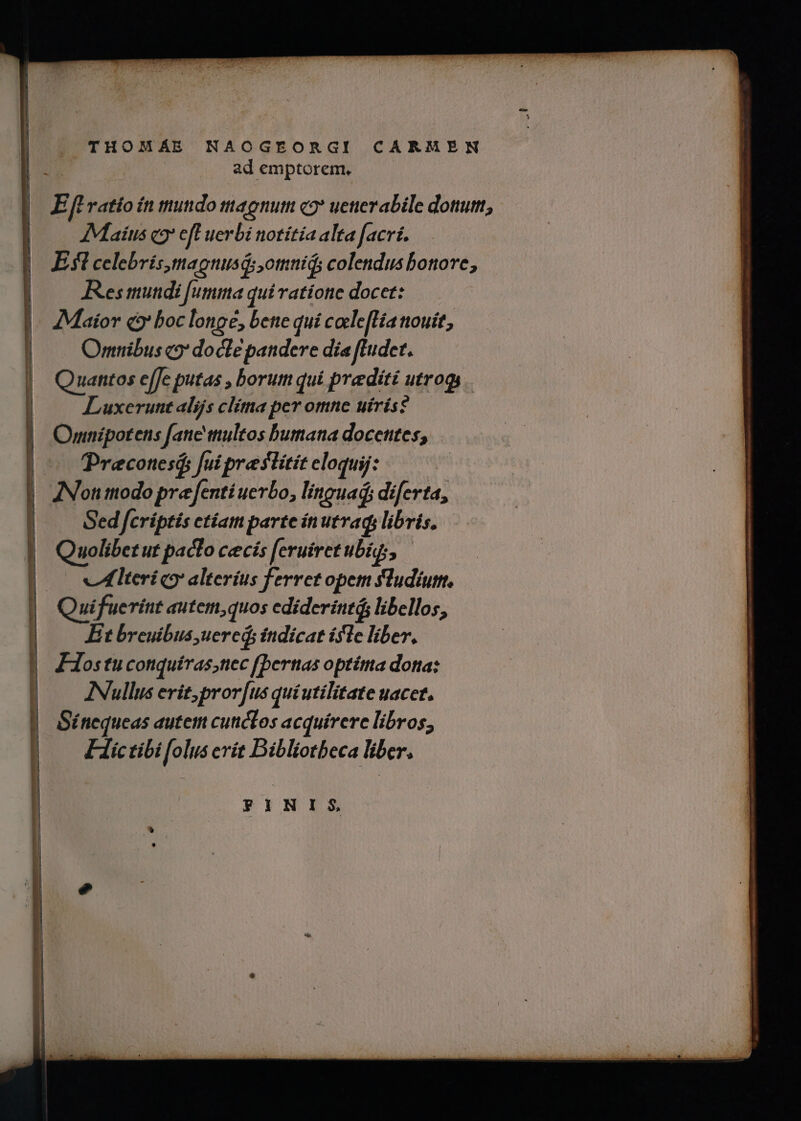 THOMAE NAOGEORGI CARMEN
ad emptorem.
Eſt ratio in mundo magnum & uenerabile donum,
Maius & eſt uerbi notitia alta ſacri.
Eſt celebris, magnusq́;, omniq́; colendus honore,
Res mundi ſumma qui ratione docet:
Maior & hoc longè, bene qui cœleſtia nouit,
Omnibus & doctè pandere dia ſtudet.
Quantos eſſe putas, horum qui præditi utroq;
Luxerunt alijs clima per omne uiris?
Omnipotens ſanè multos humana docentes,
Præconesq́; ſui præſtitit eloquij:
Non modo præſenti uerbo, linguaq́; diſerta,
Sed ſcriptis etiam parte in utraq; libris.
Quolibet ut pacto cæcis ſeruiret ubiq;,
Alteri & alterius ferret opem ſtudium.
Qui fuerint autem, quos ediderintq́; libellos,
Et breuibus, uereq́; indicat iſte liber.
Hos tu conquiras, nec ſpernas optima dona:
Nullus erit, prorſus qui utilitate uacet.
Si nequeas autem cunctos acquirere libros,
Hic tibi ſolus erit Bibliotheca liber.
FINIS.